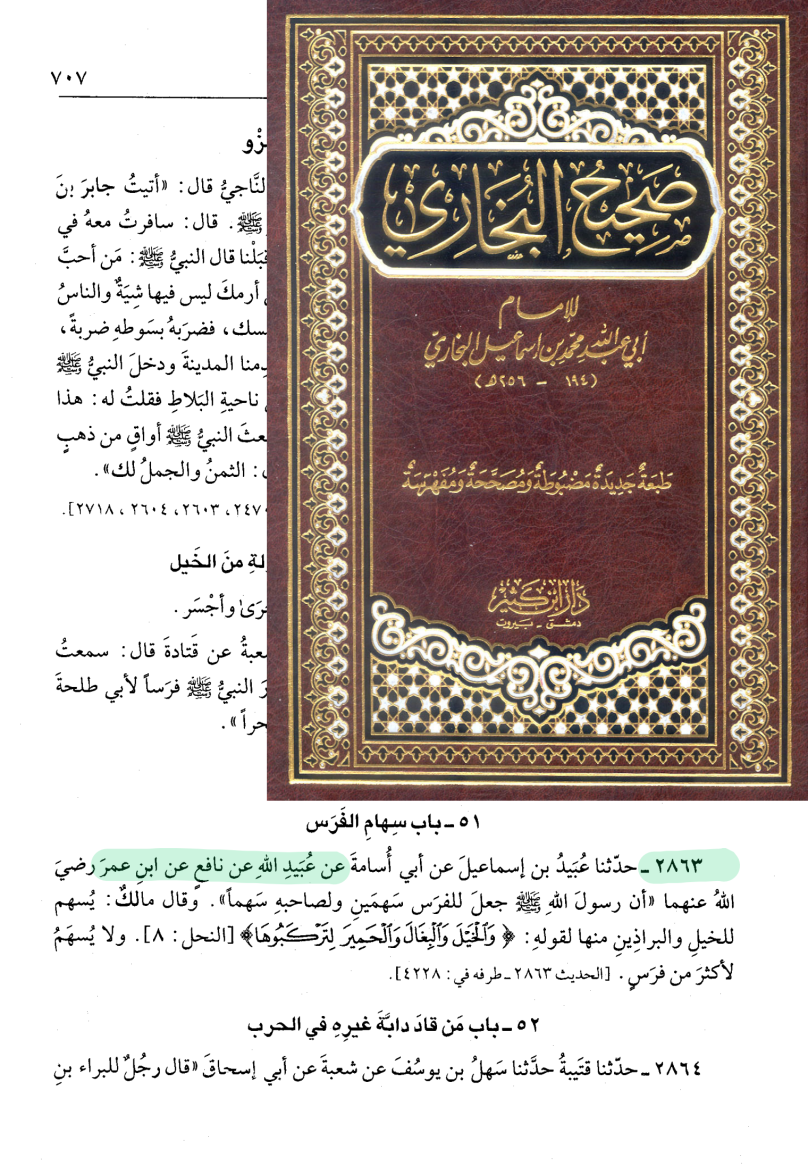 ٧٠٧
النَّاجيُّ قال: «أتيتُ جابرَ بنَ
ﷺ. قال: سافرتُ معهُ في
قال النبيُّ ﷺ: مَن أحبَّ
أرمكَ ليس فيها شِيَةٌ والناسُ
فضرَبهُ بسَوطهِ ضربةً،
المدينةَ ودخلَ النبيُّ ﷺ
ناحيةِ البَلاطِ فقلتُ له: هذا
النبيُّ ﷺ أواقٍ من ذهبٍ
: الثمنُ والجملُ لك».
٢٦٠٣، ٢٦٠٤، ٢٧١٨].
منَ الخَيل
وأجْسَر.
عن قَتادةَ قال: سمعتُ
النبيُّ ﷺ فرَساً لأبي طلحةَ
صَحِيحُ البُخَارِيّ
للإمام
أبي عبد الله محمد بن إسماعيل البخاريّ
(١٩٤ - ٢٥٦هـ)
طَبعَةٌ جَدِيدَةٌ مَضْبُوطَةٌ وَمُصَحَّحَةٌ وَمُفَهْرَسَةٌ
دَار ابن كثير
دمشق - بيروت
٥١ ـ باب سِهامِ الفَرَس
٢٨٦٣ ـ حدّثنا عُبَيدُ بن إسماعيلَ عن أبي أُسامةَ عن عُبَيدِ اللهِ عن نافعٍ عن ابنِ عمرَ رضيَ
اللهُ عنهما «أن رسولَ اللهِ ﷺ جعلَ للفرَسِ سَهمَينِ ولصاحبهِ سَهماً». وقال مالكٌ: يُسهم
للخيلِ والبراذِينِ منها لقولهِ: ﴿وَٱلْخَيْلَ وَٱلْبِغَالَ وَٱلْحَمِيرَ لِتَرْكَبُوهَا﴾ [النحل: ٨]. ولا يُسهَمُ
لأكثرَ من فرَسٍ. [الحديث ٢٨٦٣ ـ طرفه في: ٤٢٢٨].
٥٢ ـ باب مَن قادَ دابَّةَ غيرِهِ في الحرب
٢٨٦٤ ـ حدّثنا قتَيبةُ حدَّثنا سَهلُ بن يوسُفَ عن شعبةَ عن أبي إسحاقَ «قال رجُلٌ للبراء بنِ